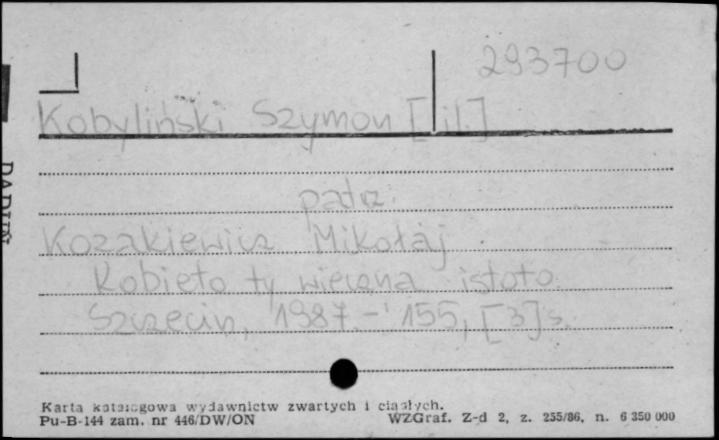 293700
Kobyliński Szymon [il.]
patrz
Kozakiewicz Mikołaj
Kobieto ty wieczna istoto
Szczecin, 1987. - 155, [3] s.
Karta katalogowa wydawnictw zwartych i ciągłych.
Pu-B-144 zam. nr 446/DW/ON WZGraf. Z-d 2, z. 255/86, n. 6 350 000